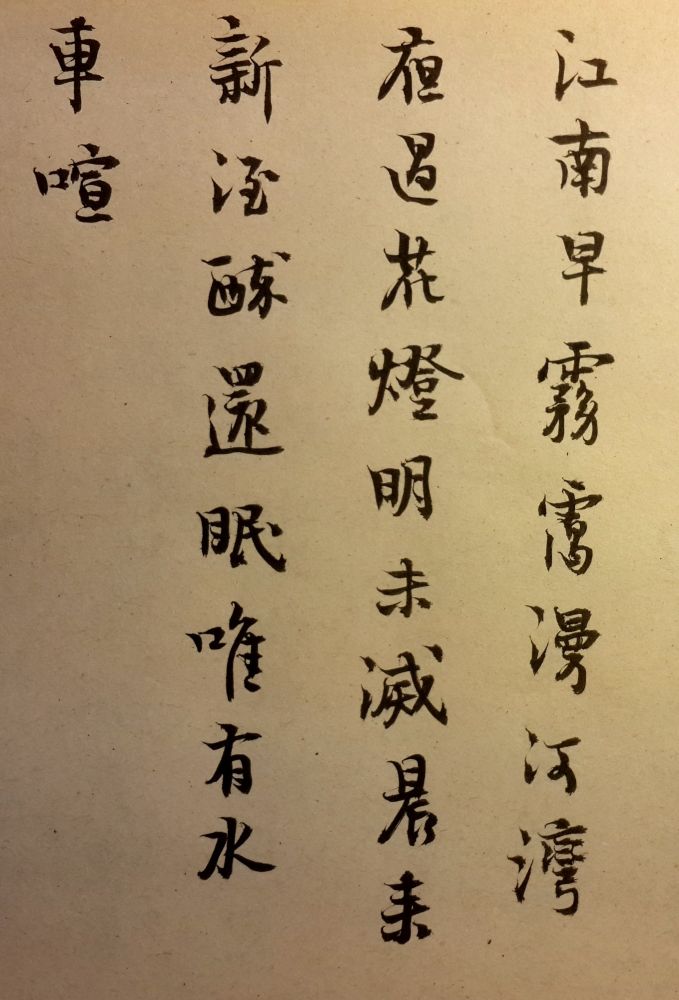 江南早霧靄漫河灣
夜過花燈明未滅晨来
新酒醉還眠唯有水
車喧